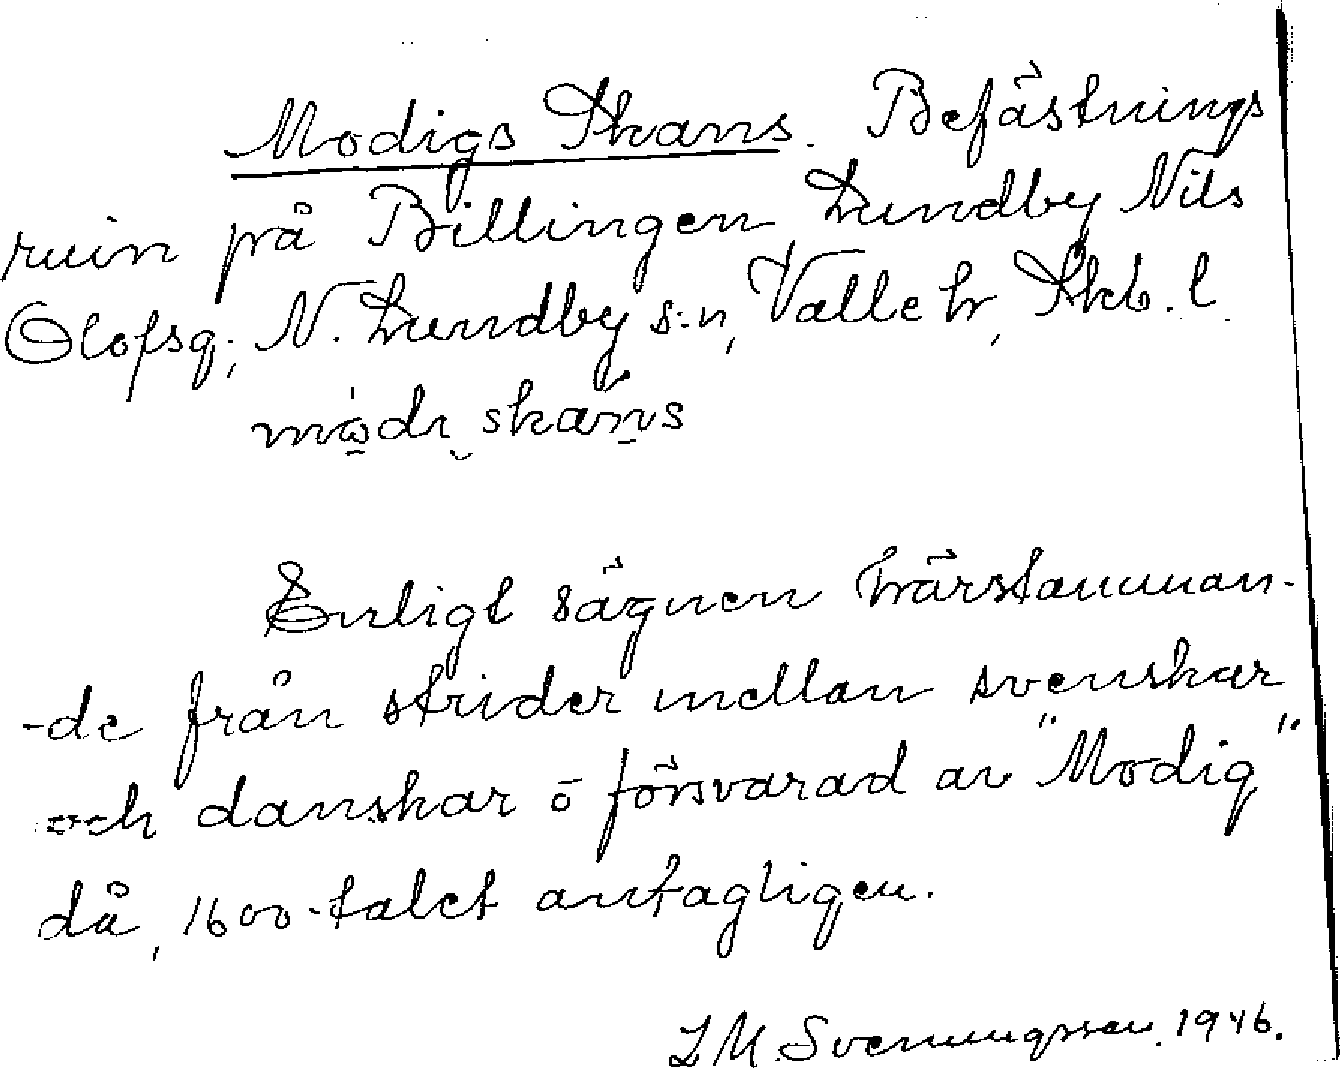 Modigs Skans. Befästnings
ruin på Billingen Lundby Nils
Olofsg., N. Lundby s:n, Valle hr, Skb. l.
Enligt sägnen härstamman-
-de från strider mellan svenskar
och danskar o försvarad av "Modig"
då, 1600-talet antagligen.
S. M. Svenungsson. 1946.